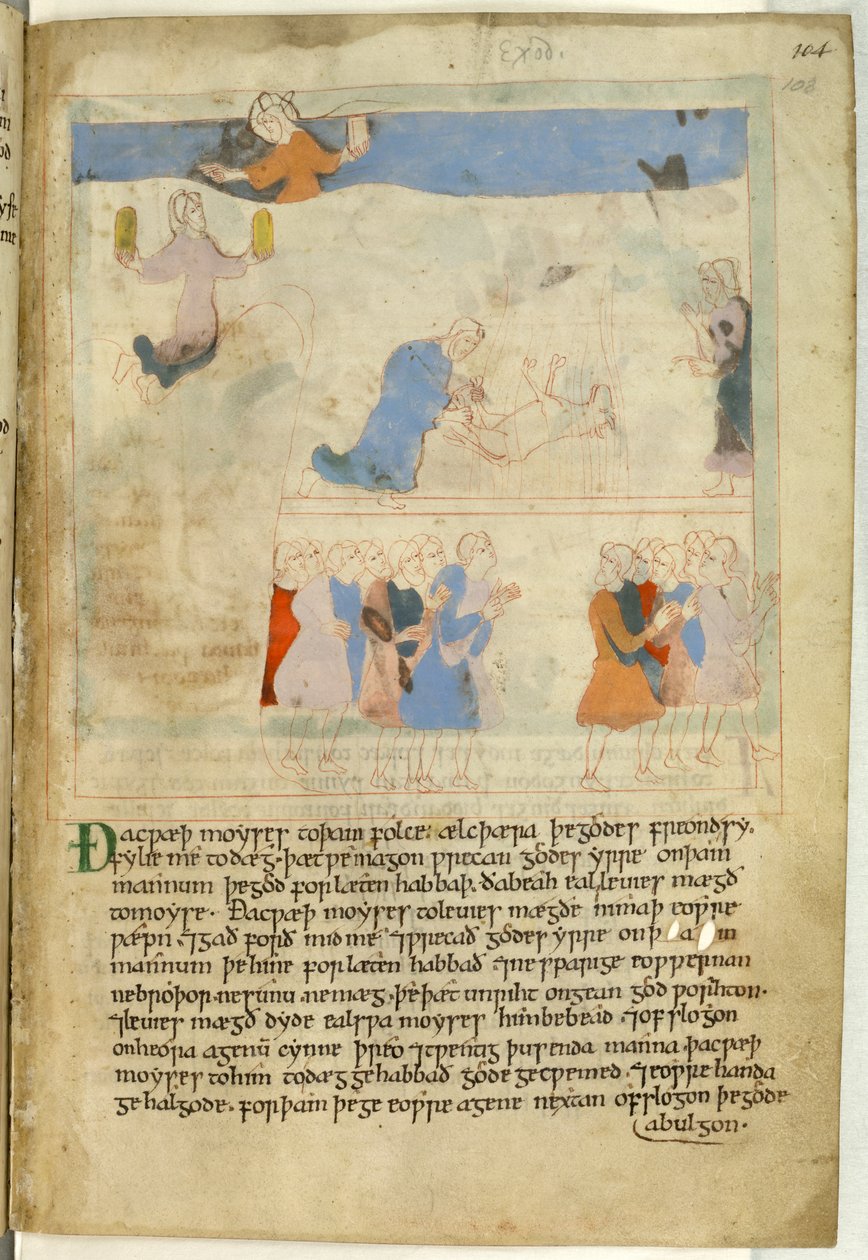 Exod.
104
103
Ða cƿæþ moyses to þam folce: ælc þæra þe godes freond sy.
fylie me to dæg. þæt ƿe magon ƿrecan godes yrre on þam
mannum þe god forlæten habbaþ. ða beah eal leuies mægð
to moyse. Ða cƿæþ moyses to leuies mægðe nimaþ eoƿre
ƿæpn ⁊ gað forð mid me ⁊ ƿrecað godes yrre on þam
mannum þe hine forlæten habbað ⁊ ne sparige eoƿer nan
ne broþor. ne sunu. ne mæg. þe þæt unriht ongean god ƿorhton.
⁊ leuies mægð dyde eal sƿa moyses him bebead. ⁊ ofslogon
on heora agenū cynne þreo ⁊ tƿentig þusenda manna. þa cƿæþ
moyses to him to dæg ge habbað gode gecƿemed. ⁊ eoƿre handa
gehalgode. forþam þe ge eoƿre agene nextan ofslogon þe gode
abulgon.